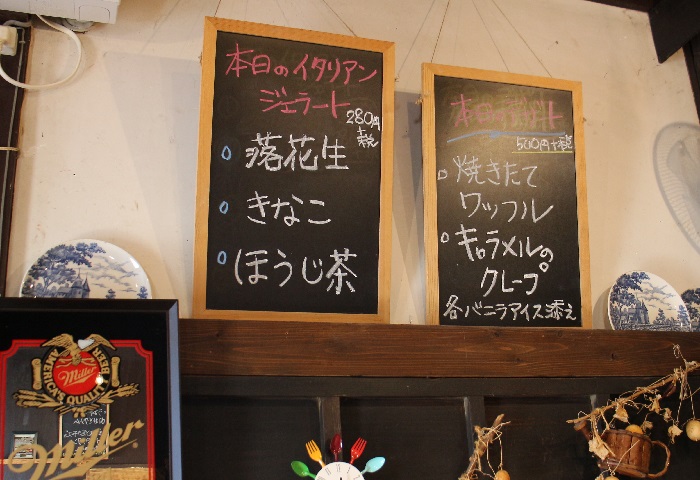 本日のイタリアン
ジェラート
280円
+税
落花生
きなこ
ほうじ茶
本日のデザート
500円+税
焼きたて
ワッフル
キャラメルの
クレープ
各バニラアイス添え
AMERICAN
BEER
Miller
Miller